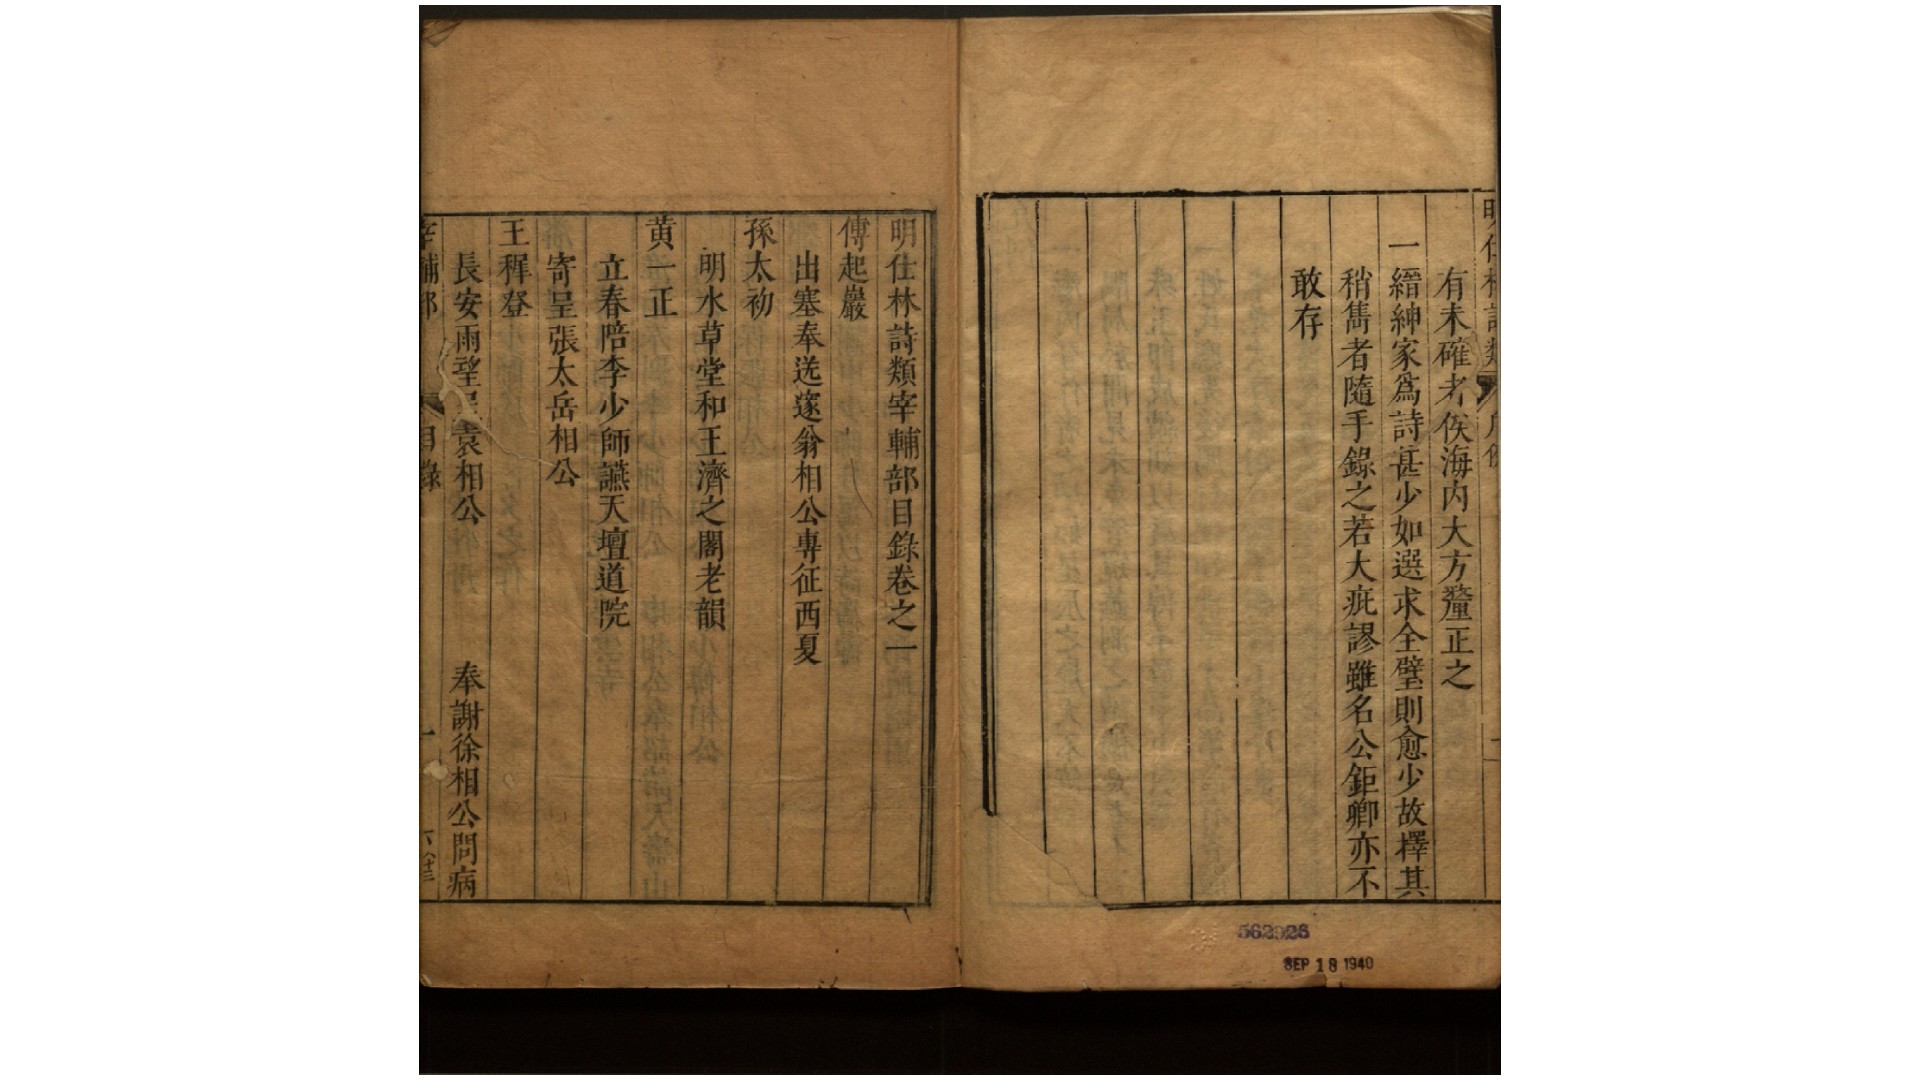 有未確者俟海内大方釐正之
一縉紳家爲詩甚少如選求全璧則愈少故擇其
稍雋者隨手錄之若大疵謬雖名公鉅卿亦不
敢存
562926
SEP 18 1940
明仕林詩類宰輔部目錄卷之一
傅起巖
出塞奉送邃翁相公專征西夏
孫太初
明水草堂和王濟之閣老韻
黄一正
立春陪李少師讌天壇道院
寄呈張太岳相公
王穉登
長安雨望呈袁相公 奉謝徐相公問病
宰輔部 目錄 一